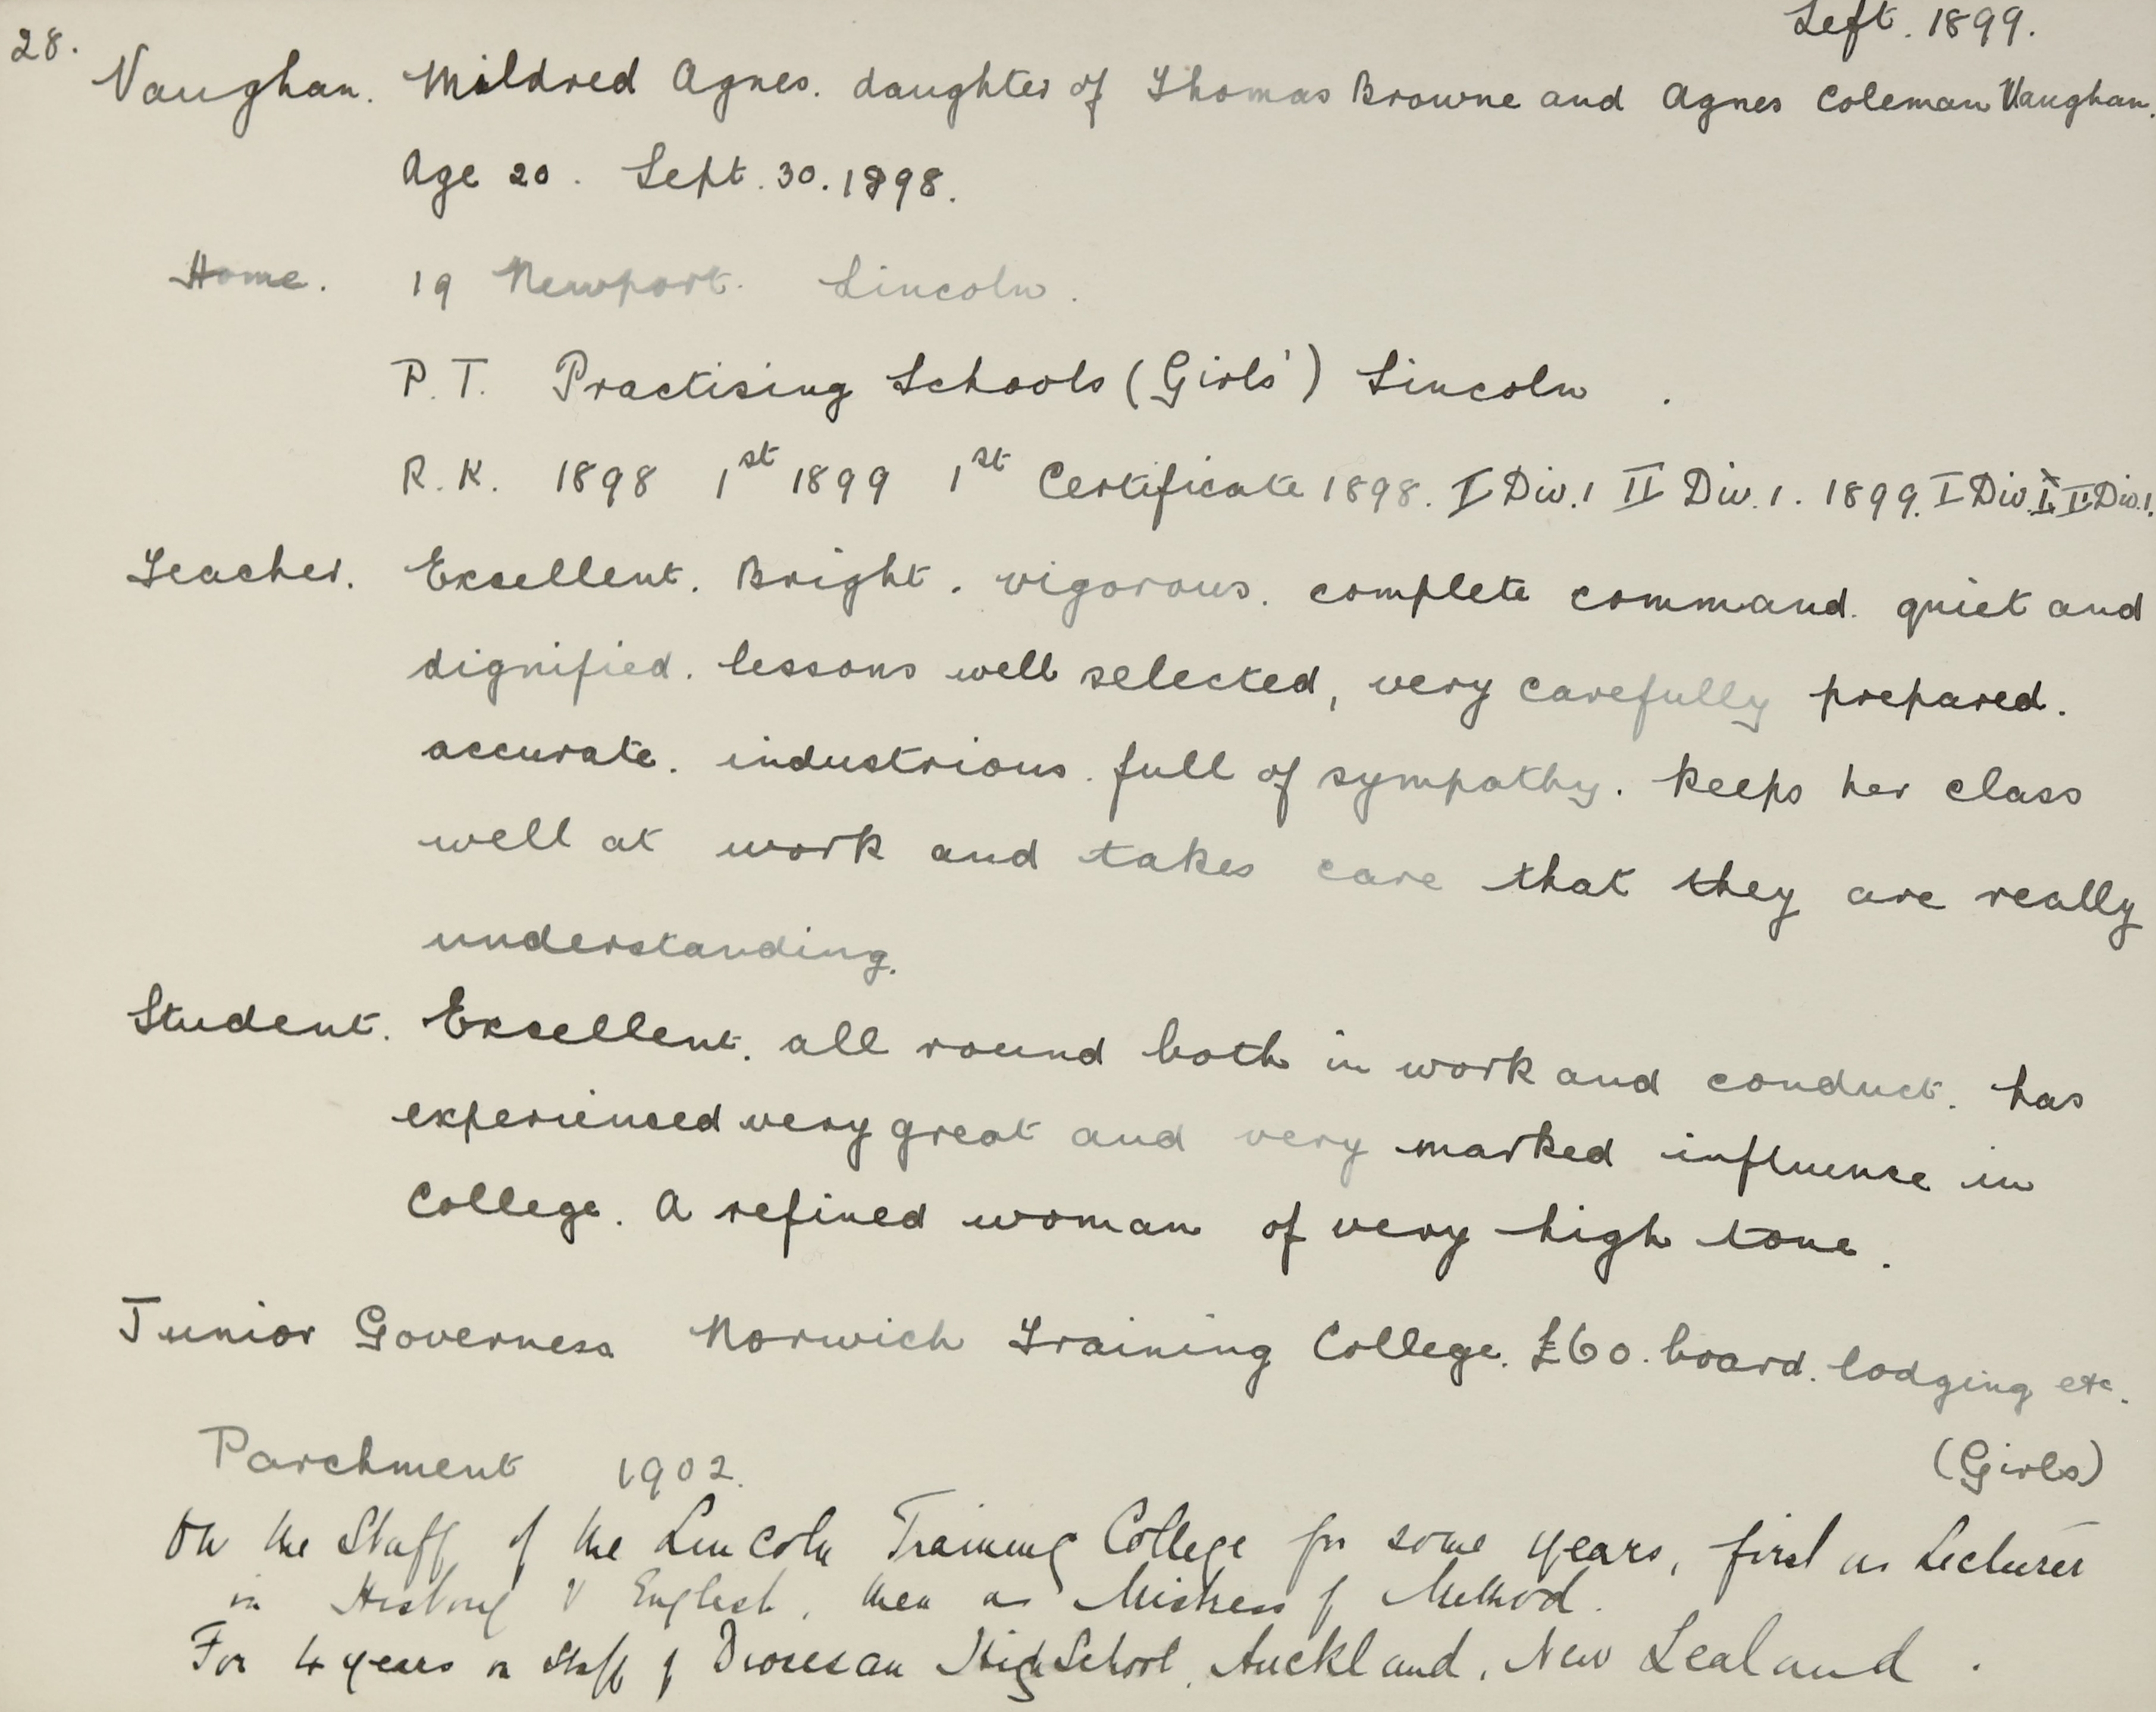 Left. 1899.
28.
Vaughan. Mildred Agnes. daughter of Thomas Browne and Agnes Coleman Vaughan.
Age 20. Sept. 30. 1898.
Home. 19 Newport. Lincoln.
P.T. Practising Schools (Girls') Lincoln.
R.K. 1898 1st 1899 1st Certificate 1898. I Div. 1 II Div. 1. 1899. I Div. I. II Div. 1.
Teacher. Excellent. Bright. vigorous. complete command. quiet and
dignified. lessons well selected, very carefully prepared.
accurate. industrious. full of sympathy. keeps her class
well at work and takes care that they are really
understanding.
Student. Excellent. all round both in work and conduct. has
experienced very great and very marked influence in
College. A refined woman of very high tone.
Junior Governess Norwich Training College. £60. board. lodging etc.
(Girls)
Parchment 1902.
On the Staff of the Lincoln Training College for some years, first as Lecturer
in History & English, then as Mistress of Method.
For 4 years on staff of Diocesan High School, Auckland, New Zealand.